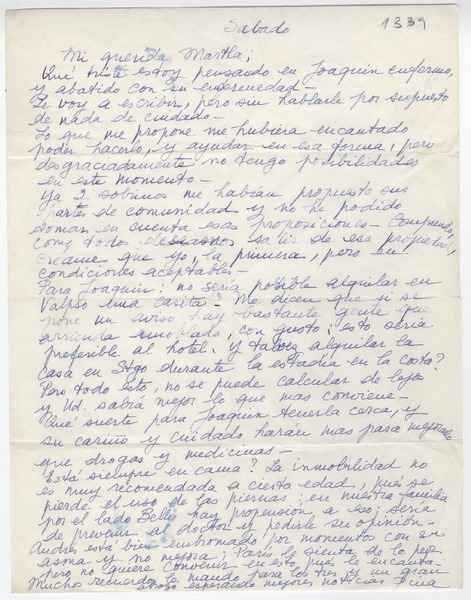 Sabado
1339
Mi querida Martha;
Qué triste estoy pensando en Joaquin enfermo,
y abatido con su enfermedad—
Le voy a escribir, pero sin hablarle por supuesto
de nada de cuidado—
Lo que me propone me hubiera encantado
poder hacerlo, y ayudar en esa forma, pero
desgraciadamente no tengo posibilidades
en este momento—
Ya 2 sobinos me habían propuesto sus
partes de comunidad y no he podido
tomar en cuenta esas proposiciones— Comprendo,
como todos deseamos salir de esa propiedad,
créame que yo, la primera, pero en
condiciones aceptables—
Para Joaquin: no seria posible alquilar en
Valpso una casita? Me dicen que si se
pone un aviso hay bastante gente que
arrienda amoblado, con gusto: esto seria
preferible al hotel. y talvez alquilar la
casa en Stgo durante la estadia en la costa?
Pero todo esto, no se puede calcular de lejos
y Ud. sabrá mejor lo que mas conviene—
Qué suerte para Joaquin tenerla cerca, y
su cariño y cuidado harán mas para mejorarlo
que drogas y medicinas—
Está siempre en cama? La inmobilidad no
es muy recomendada a cierta edad, pués se
pierde el uso de las piernas: en nuestra familia
por el lado Bello hay propensión a eso; seria
de prevenir al doctor y pedirle su opinión—
Andrés está bien embromado por momentos con su
asma y no mejora; Paris le sienta de lo peor
pero no quiere convenir en esto pués le encanta—
Muchos recuerdos le mando para los tres y un gran
abrazo esperando mejores noticias